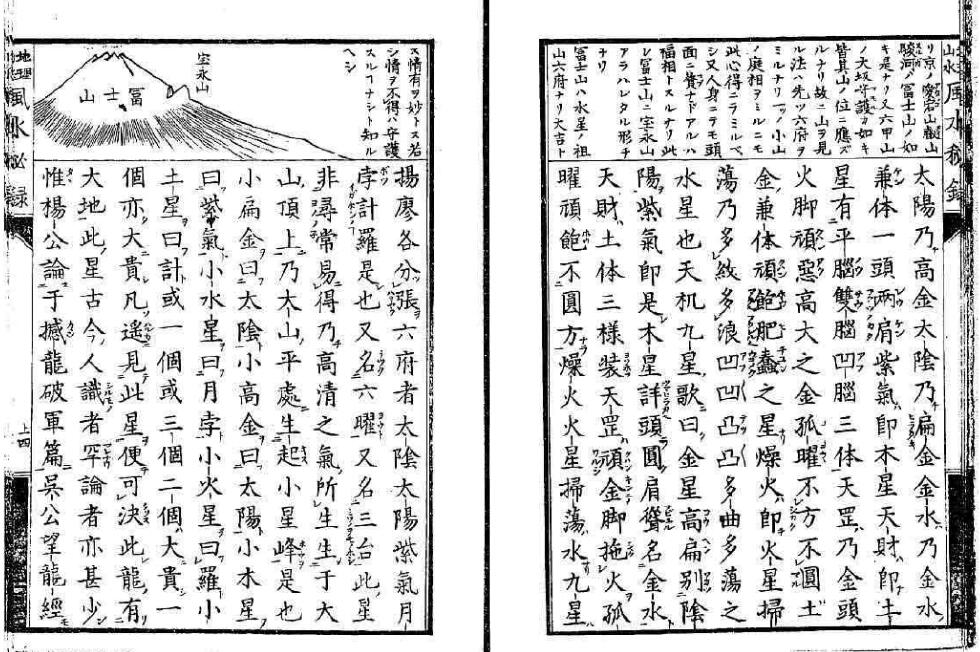 リ京ノ愛宕山叡山
駿河ノ冨士山ノ如
キ是ナリ又六甲山
ノ大坂守護ノ如キ
皆其山ノ位ニ應ズ
ルナリ故ニ山ヲ見
ル法ハ先ツ六府ヲ
ミルナリ一ノ小山
ノ庭相ヲミルニモ
此心得ニテミルベ
シ又人身ニテモ頭
面ニ贅ナドアルハ
福相トスルナリ此
レ冨士山ニ宝永山
アラハレタル形チ
ナリ
冨士山ハ水星ノ祖
山六府ナリ大吉ト
太陽乃高金太陰乃扁金金水乃金水
兼体一頭兩肩紫氣卽木星天財卽土
星有平腦雙腦凹腦三体天罡乃金頭
火脚頑惡高大之金孤曜不方不圓土
金兼体頑飽肥蠢之星燥火卽火星掃
蕩乃多紋多浪凹凹凸凸多曲多蕩之
水星也天机九星歌曰金星高扁別陰
陽紫氣卽是木星詳頭圓肩聳名金水
天財土体三樣裝天罡頑金脚拖火孤
曜頑飽不圓方燥火火星掃蕩水九星
ス情有ヲ妙トス若
シ情ヲ不得ハ守護
スルコナシト知ル
ヘシ
宝永山
冨士山
揚廖各分張六府者太陰太陽紫氣月
孛計羅是也又名六曜又名三台此星
非尋常易得乃高清之氣所生生于大
山頂上乃大山平處生起小星峰是也
小扁金曰太陰小高金曰太陽小木星
曰紫氣小水星曰月孛小火星曰羅小
土星曰計或一個或三個二個大貴一
個亦大貴凡遙見此星便可決此龍有
大地此星古今人識者罕論者亦甚少
惟楊公論于撼龍破軍篇吳公望龍經
地理風水秘録
上四